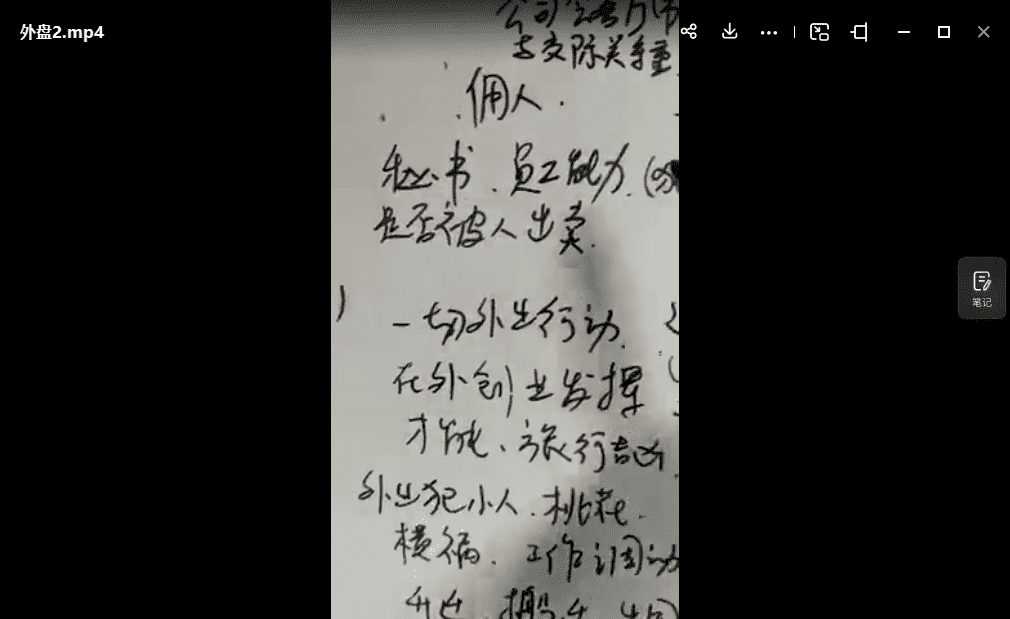 外盘2.mp4
公司
与交际关系重
佣人.
秘书、员工能力.(
是否被人出卖.
)
一切外出行动.
在外创业发挥
才能、旅行吉凶.
外出犯小人.桃花.
横祸. 工作调动
升迁.搬
笔记